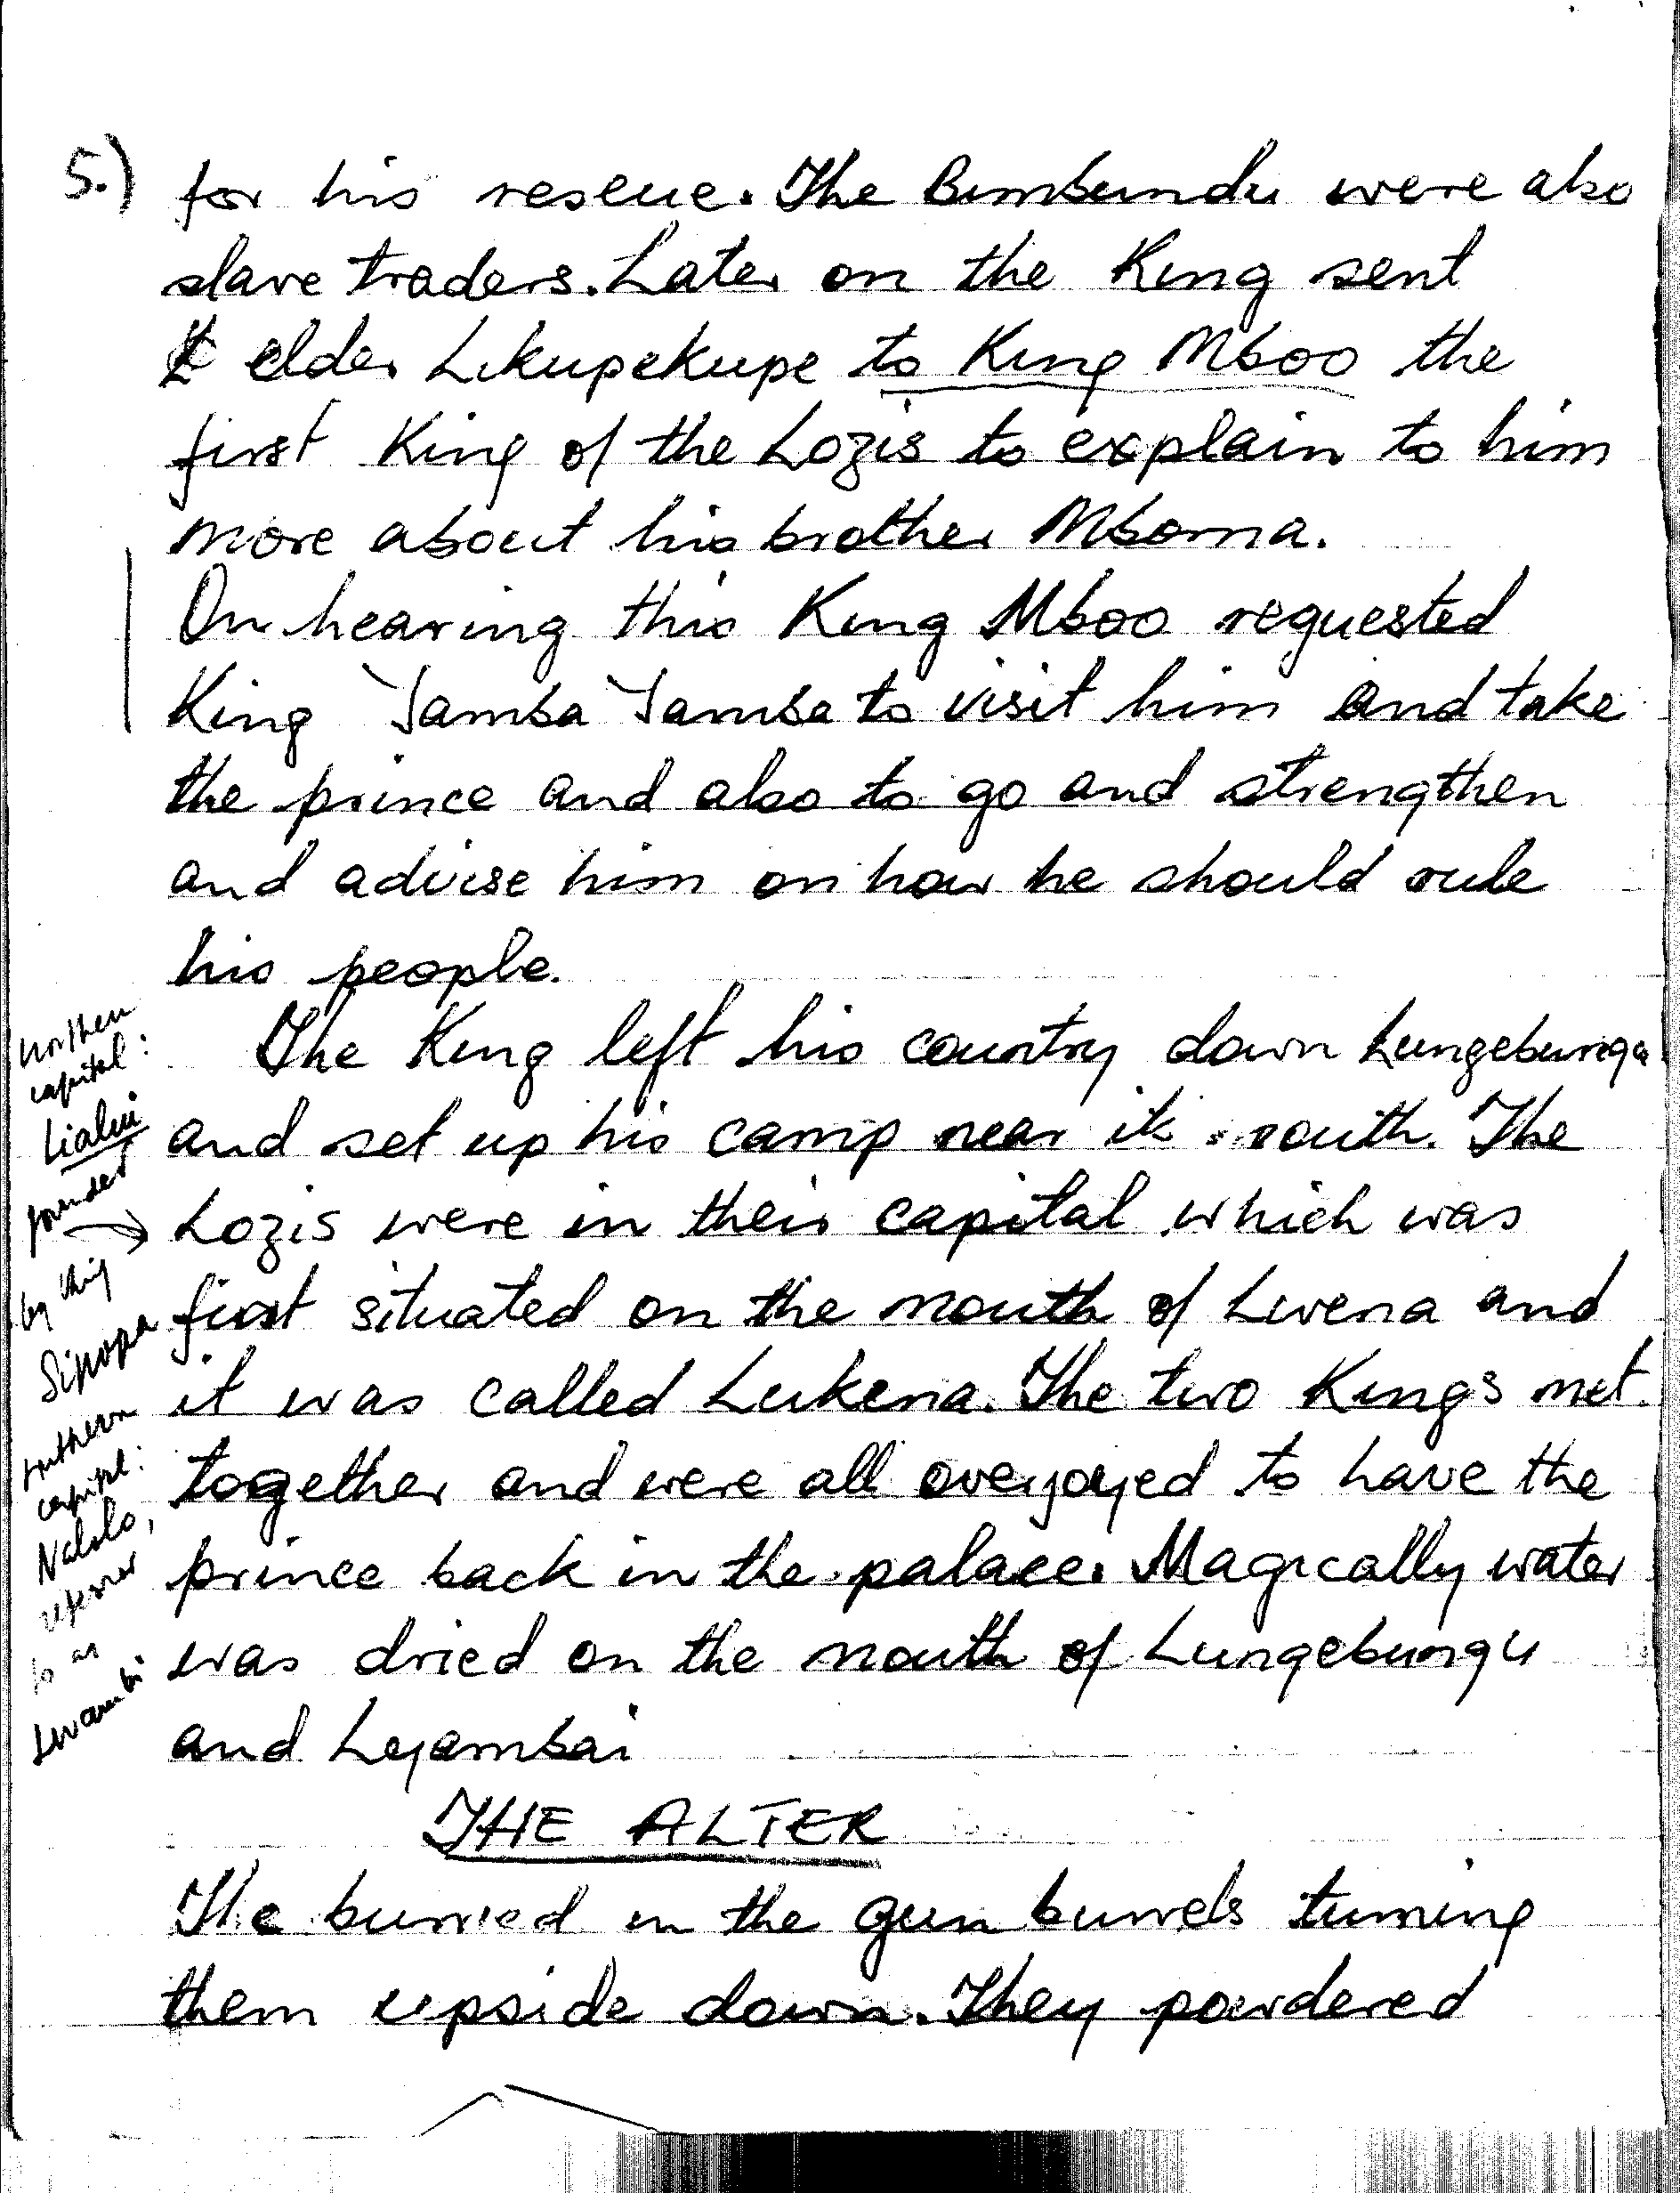 5.) for his rescue. The Bimbundu were also
slave traders. Later on the King sent
elder Likupekupe to King Mboo the
first King of the Lozis to explain to him
more about his brother Mboma.
On hearing this King Mboo requested
King Yamba Yamba to visit him and take
the prince and also to go and strengthen
and advise him on how he should rule
his people.
The King left his country down Lungebungu
and set up his camp near its mouth. The
Lozis were in their capital which was
first situated on the mouth of Lwena and
it was called Lukena. The two Kings met
together and were all overjoyed to have the
prince back in the palace. Magically water
was dried on the mouth of Lungebungu
and Lyambai
THE ALTER
The burried in the gun burrels turning
them upside down. They powdered
northern
capital:
Lialui
founded
by King
Sipopa
southern
capital:
Nalolo,
referred
to as
Lwambi